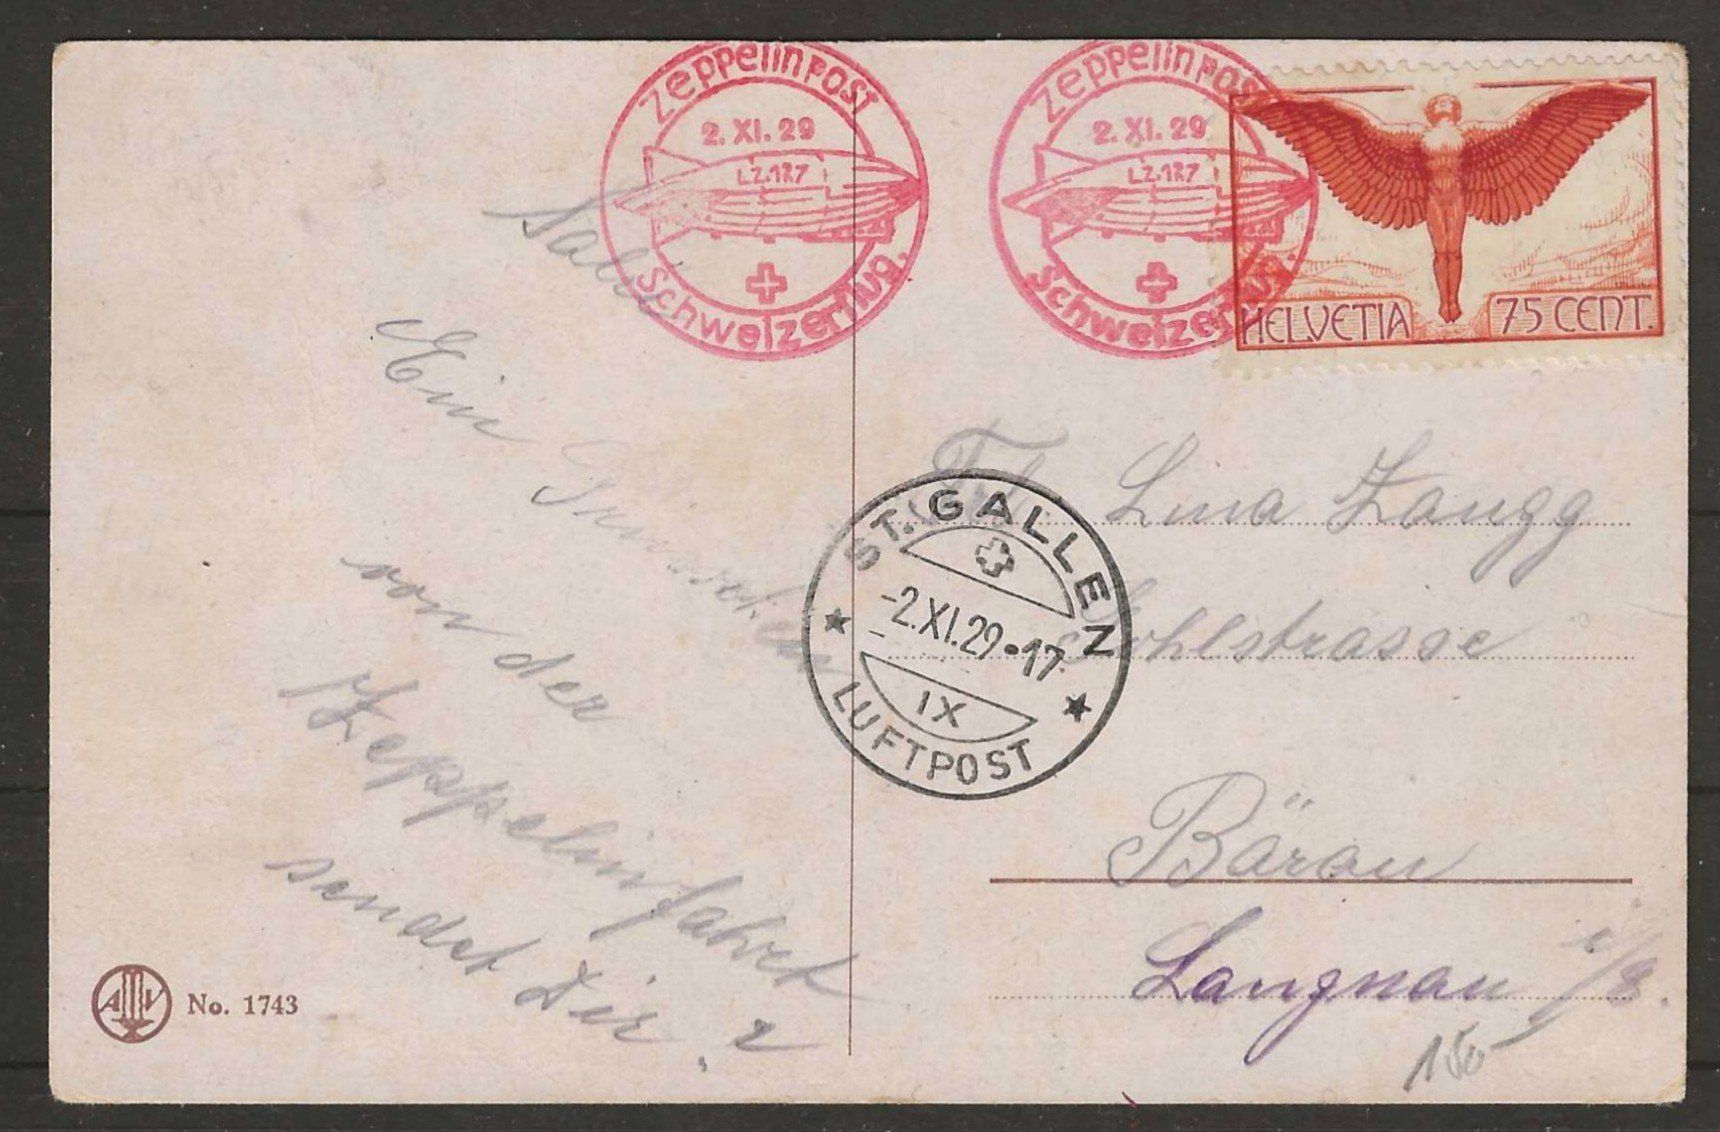 Zeppelinpost
2. XI. 29
LZ.127
Schweizerflug.
Zeppelinpost
2. XI. 29
LZ.127
Schweizerflug.
HELVETIA 75 CENT.
Salü
Ein
von der
Zeppelinfahrt
sendet Dir.
Frl. Lina Zangg
ohlstrasse
Bärau
Langnau i/E.
150
ST. GALLEN
-2.XI.29•17
IX
LUFTPOST
No. 1743